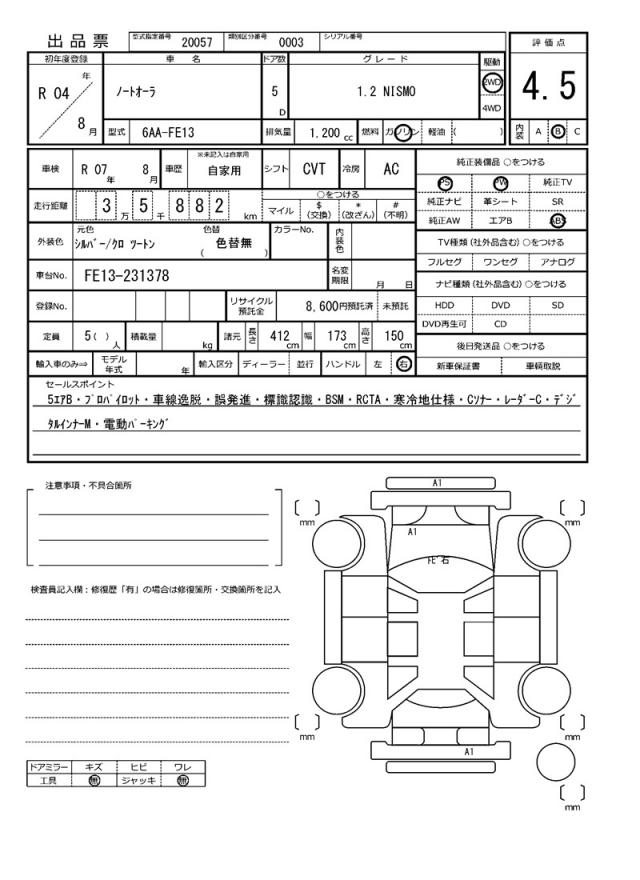 出品票 型式指定番号 20057 類別区分番号 0003 シリアル番号
初年度登録 車名 ドア数 グレード 駆動 評価点
R 04 年 ノートオーラ 5 D 1.2 NISMO 2WD 4WD 4.5
8 月 型式 6AA-FE13 排気量 1.200 cc 燃料 ガソリン 軽油 ( ) 内装 A B C
車検 R 07 年 8 月 車歴 ※未記入は自家用 自家用 シフト CVT 冷房 AC 純正装備品 ○をつける
PS PW 純正TV
走行距離 3 万 5 千 8 8 2 km ○をつける
マイル $ (交換) * (改ざん) # (不明)
純正ナビ 革シート SR
純正AW エアB ABS
外装色 元色 シルバー/クロ ツートン 色替 色替無 ( ) カラーNo. 内装色
TV種類 (社外品含む) ○をつける
フルセグ ワンセグ アナログ
車台No. FE13-231378 名変期限 月 日
ナビ種類 (社外品含む) ○をつける
登録No. リサイクル預託金 8,600円預託済 未預託
HDD DVD SD
DVD再生可 CD
定員 5( ) 人 積載量 kg 諸元 長さ 412 cm 幅 173 cm 高さ 150 cm
後日発送品 ○をつける
輸入車のみ⇒ モデル年式 年 輸入区分 ディーラー 並行 ハンドル 左 右
新車保証書 車輌取説
セールスポイント
5エアB・プロパイロット・車線逸脱・誤発進・標識認識・BSM・RCTA・寒冷地仕様・Cソナー・レーダーC・デジ
タルインナーM・電動パーキング
注意事項・不具合箇所
A1
mm
mm
A1
トビ石
検査員記入欄：修復歴「有」の場合は修復箇所・交換箇所を記入
mm
mm
A1
ドアミラー キズ ヒビ ワレ
工具 無 ジャッキ 無
mm